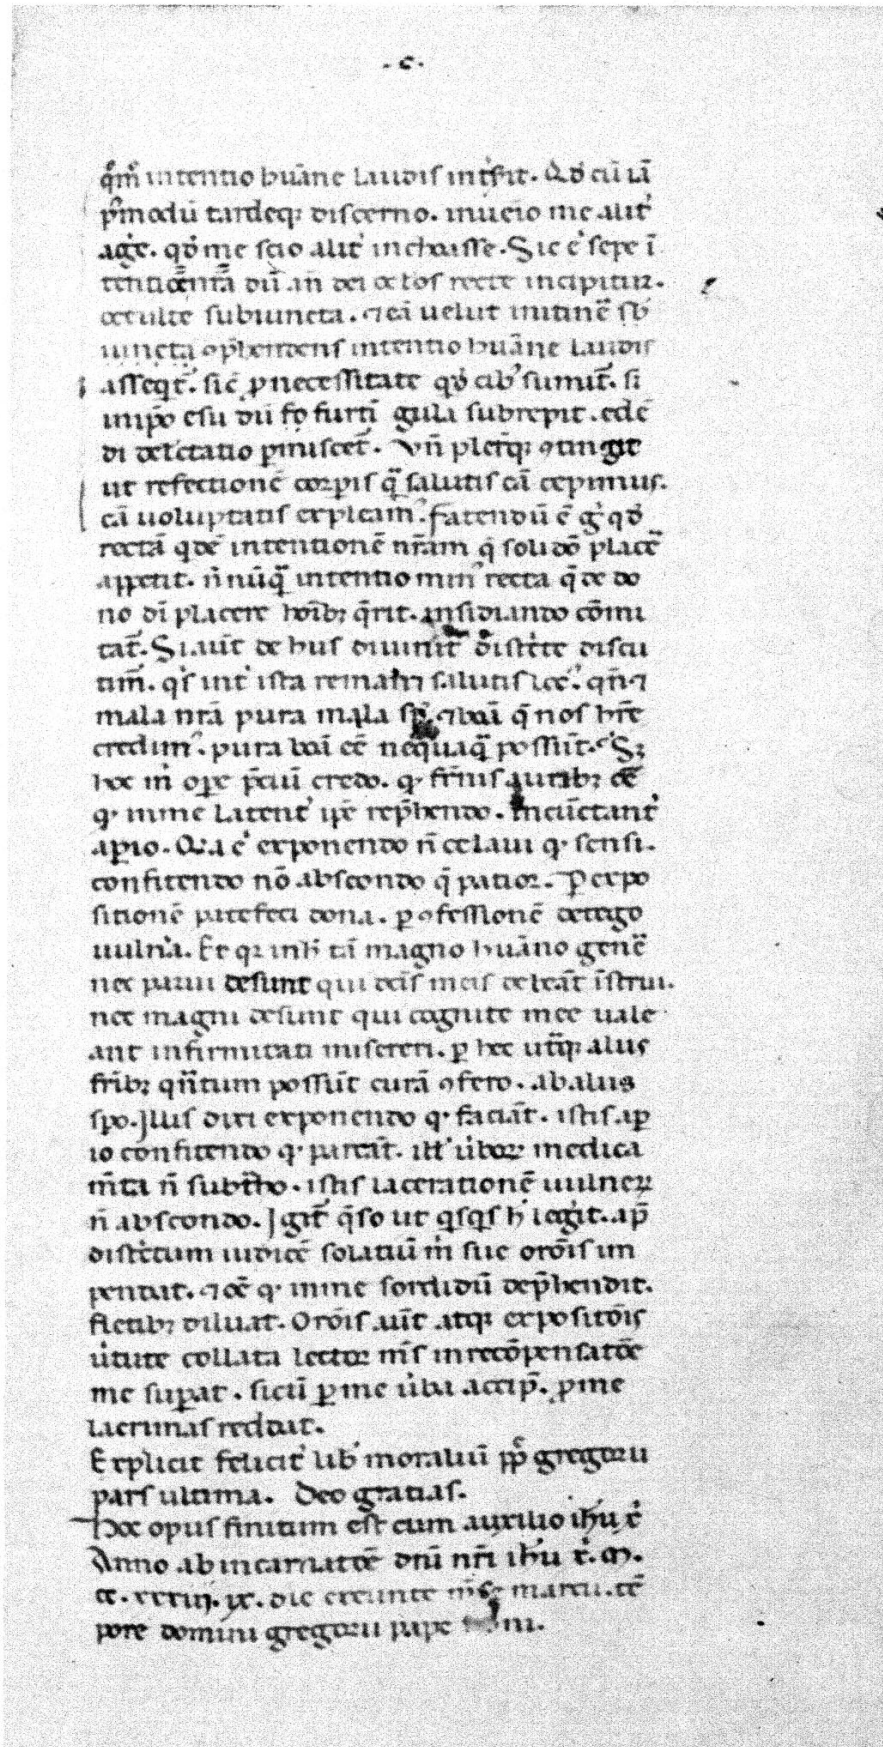 .c.
qm̄ intentio huāne laudis intersit. Qd̓ cū iā
p̄modū tardeq; discerno. inuēio me alit̓
agere. qd̓ me scio alit̓ inchoasse. Sic e̓ sepe ī
tentio nr̄a dū an̄ dei oc̄los recte incipitur.
occulte subiuncta. ⁊ eā uelut initinēe sb̓
iuncta ꝯp̄hendens intentio huāne laudis
asseqt̄. sic̄ ꝓ necessitate qd̓ cib̓ sumit̄. s̄
inip̄o esu dū furtī gula subrepit. edē
di delectatio p̱miscet̄. Vn̄ plerūq; ꝯtingit
ut refectionē corꝑis qā salutis cā cepimus.
cā uoluptatis expleam᷒. Fatendū ē gͥ qd̓
rectā qdē intentionē nr̄am q̄ soli dō placēe
appetit. n̄nūqā intentio min᷒ recta q̄ de do
no dī placere hoīb; q̄rit. insidiando cōmi
tat̄. Si aut̄ de hiis diuinit̓ distc̄te discu
tim̄. qͥs int̓ ista remanet salutis loc᷒. qn̄ ⁊
mala nr̄a pura mala st̄. ⁊ boā q̄ nos hr̄e
credim᷒. pura boā eē nequaqā possūt. S;
hoc m̓ oꝑe p̄ciū credo. qͩ fr̄nis aurib; oc̄e
qͩ mme latent̓ ip̄e rep̄hendo. incūctant̓
aꝑio. Qͥa e̓ exponendo n̄ celaui qͩ sensi.
confitendo nō abscondo q̄ patior. Ꝑ expo
sitionē patefeci dona. ꝑ ꝯfessionē detego
uulnͣa. Et qꝛ inh̄ tā magno huāno genēe
nec parui desunt qui dc̄is meis debeāt īstrui.
nec magni desunt qui cognite mee uale
ant infirmitati misereri. ꝑ hec utͥq; aliis
frīb; qn̄tum possūt curā ꝯfero. ab aliis
spo. Illis dixi exponendo qͩ faciāt. istis aꝑ
io confitendo qͩ parcāt. ill̓ ūborꝝ medica
m̄ta n̄ subtͣho. istis lacerationē uulnerꝝ
n̄ abscondo. Igit̄ q̄so ut qͥsqͥs h̓ legit. ap̄
distc̄tum iudicē solatiū m̓ sue orōis im
pendat. ⁊ oē qͩ mme sordidū dep̄hendit.
fletib; diluat. Orōis aut̄ atq; expositōis
ūtute collata lector m̄s inrecōpensatōe
me suꝑat. si cū ꝑ me ūba accip̄. ꝓ me
lacrimas reddat.
Explicit felicit̓ lib̓ moraliū pp̄ gregorii
pars ultima. Deo gratias.
Hoc opus finitum est cum auxilio ih̄u xͥ
Anno ab incarnatōe dn̄i nr̄i ih̄u xͥ. M.
cc. xxxiij. ix. die exeunte m̄se marcii. tē
pore domini gregorii pape noni.